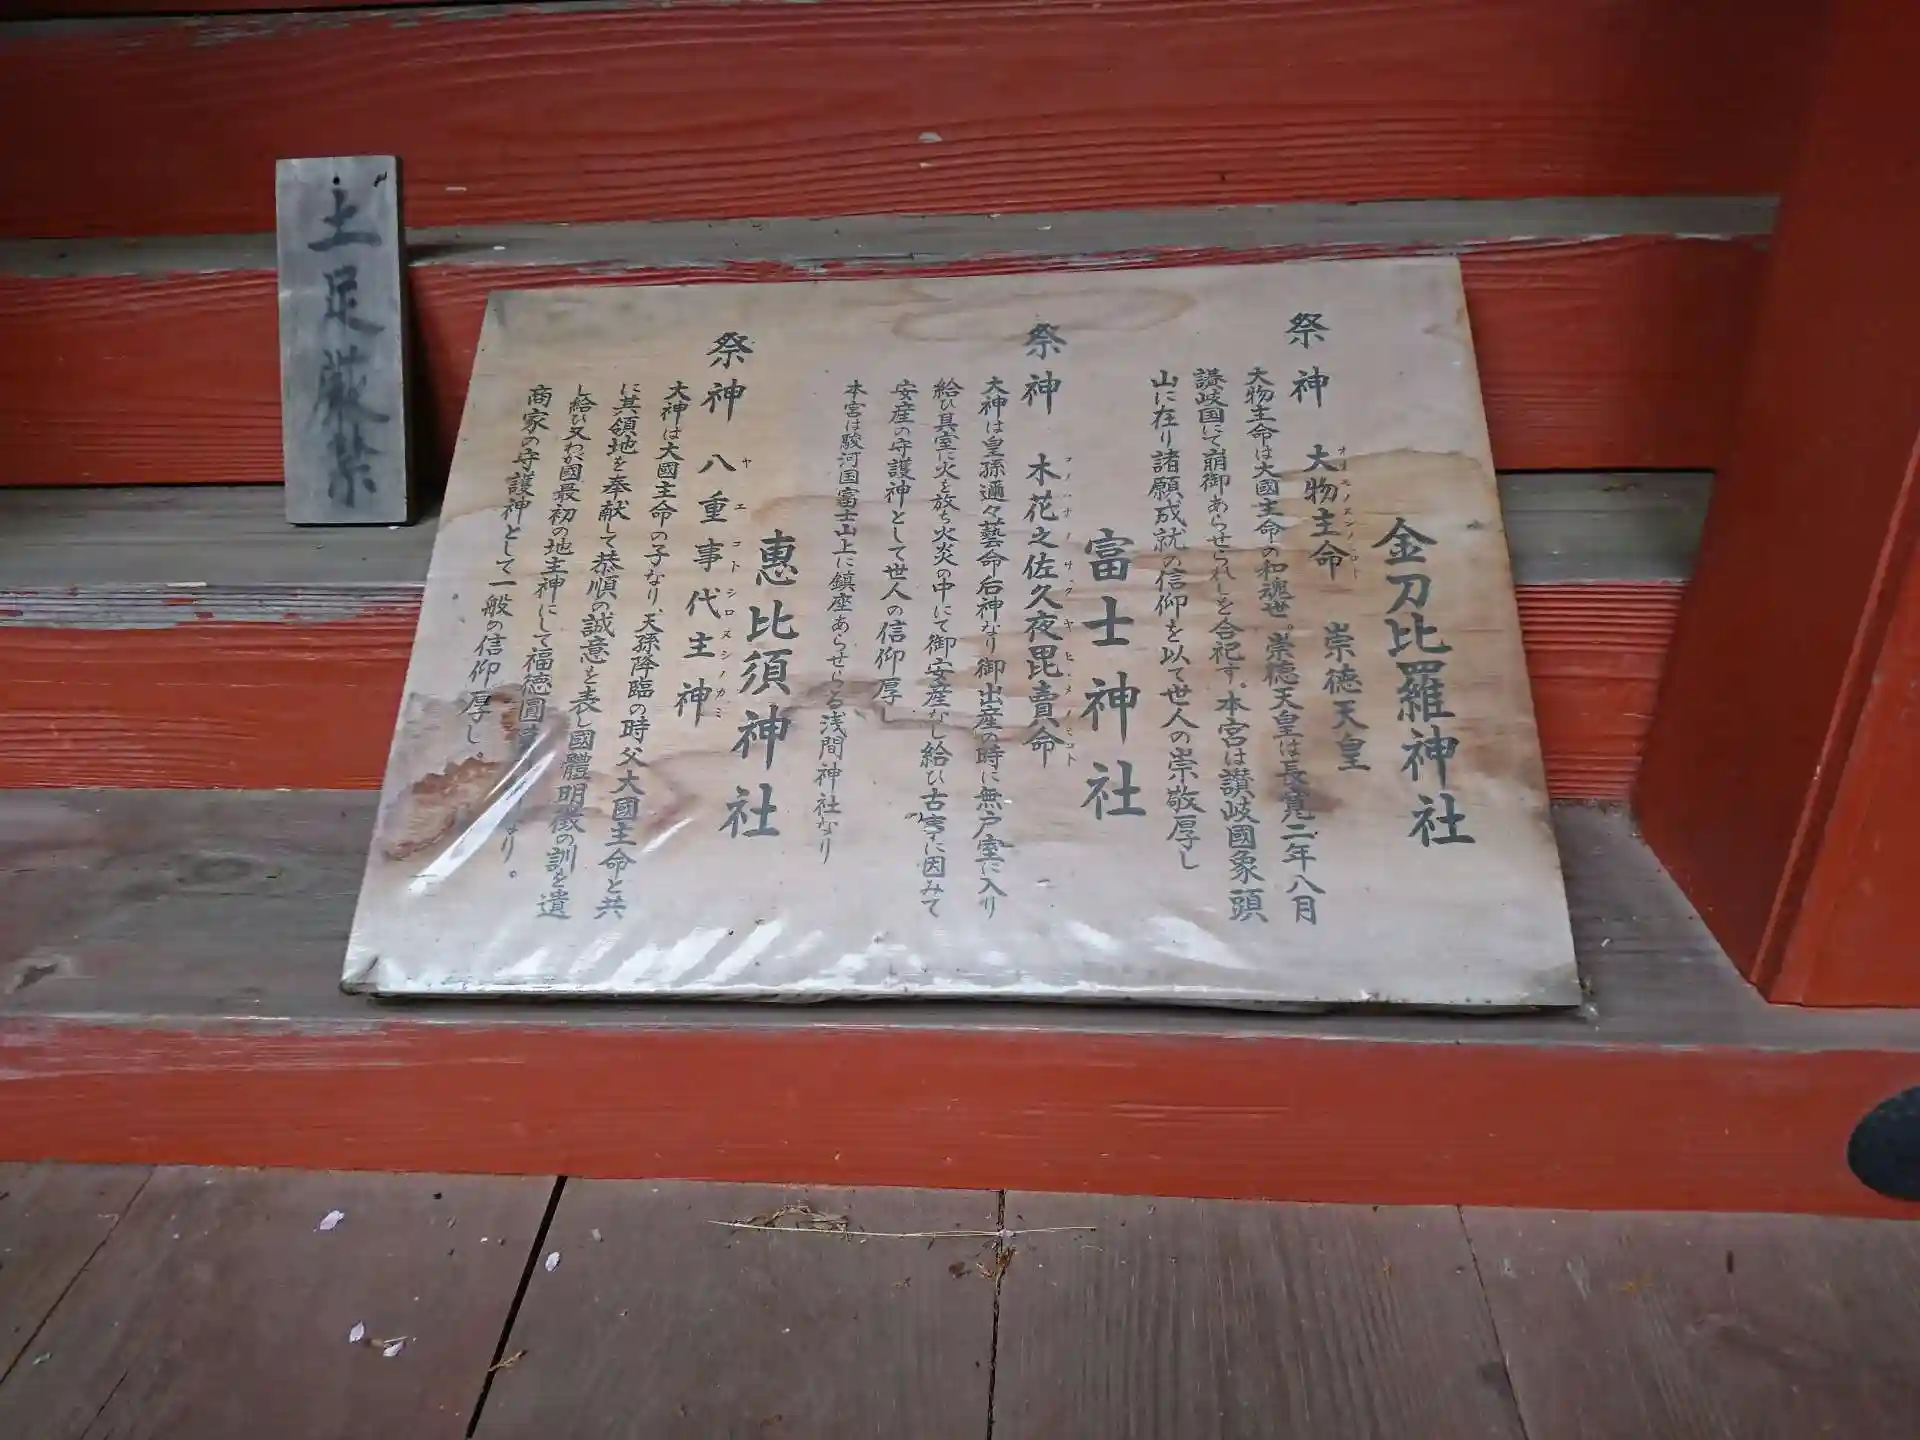 金刀比羅神社
祭神 大物主命 崇徳天皇
大物主命は大國主命の和魂也。崇徳天皇は長寛二年八月
讃岐国にて崩御あらせられしを合祀す。本宮は讃岐國象頭
山に在り諸願成就の信仰を以て世人の崇敬厚し
富士神社
祭神 木花之佐久夜毘賣命
コノハナノサクヤヒメノミコト
大神は皇孫邇々藝命后神なり御出産の時に無戸室に入り
給ひ其室に火を放ち火炎の中にて御安産なし給ひ古事に因みて
安産の守護神として世人の信仰厚し
本宮は駿河国富士山上に鎮座あらせらる浅間神社なり
恵比須神社
祭神 八重事代主神
ヤエコトシロヌシノカミ
大神は大國主命の子なり、天孫降臨の時父大國主命と共
に其領地を奉献して恭順の誠意を表し國體明徴の訓を遺
し給ひ又わが國最初の地主神にして福徳圓満なり。
商家の守護神として一般の信仰厚し。
土足厳禁